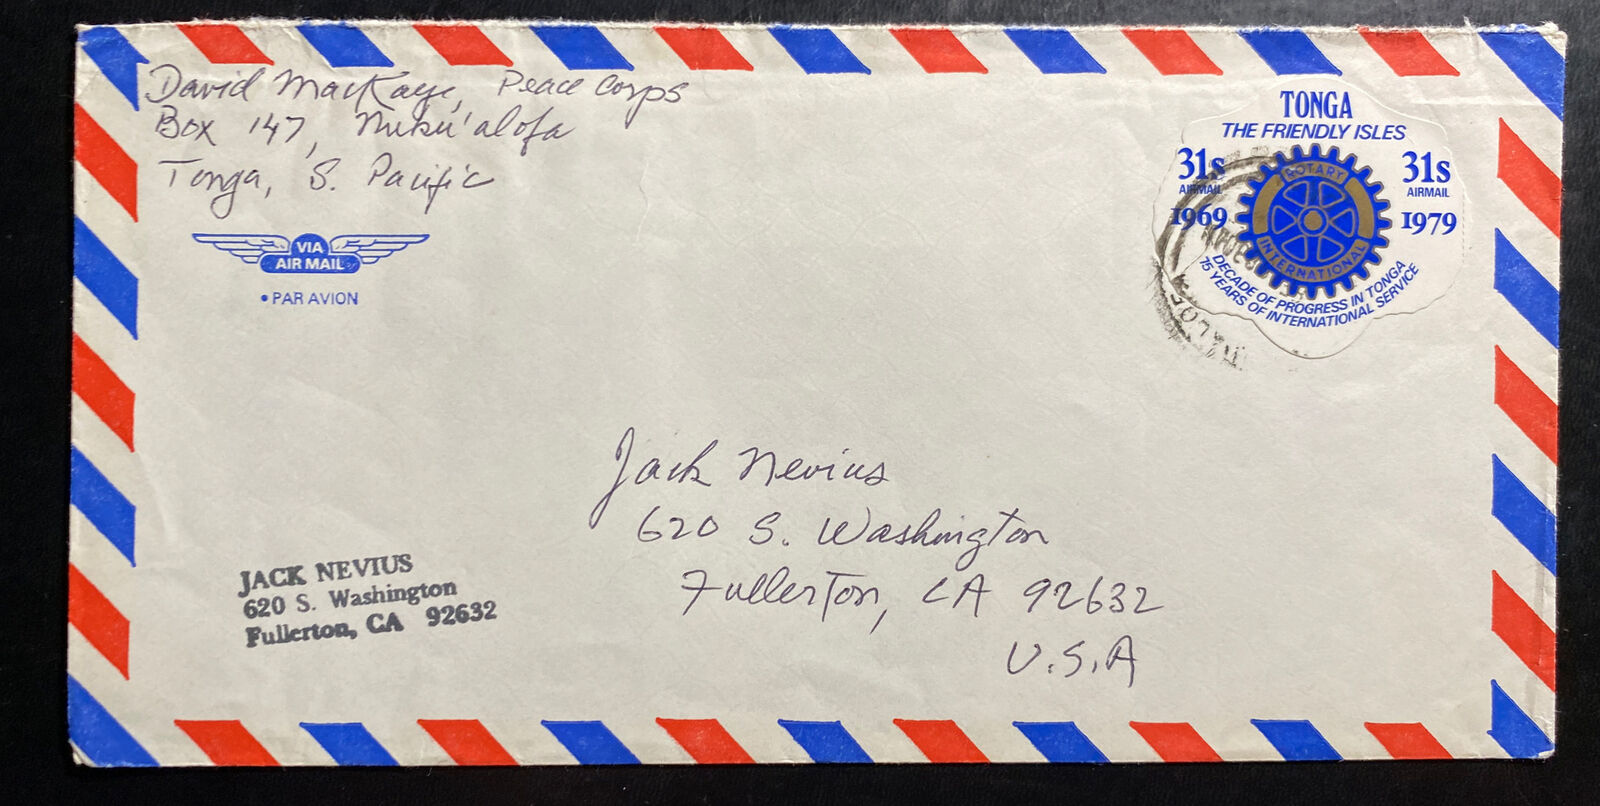 David MacKaye, Peace Corps
Box 147, Nuku'alofa
Tonga, S. Pacific
VIA
AIR MAIL
• PAR AVION
TONGA
THE FRIENDLY ISLES
31s 31s
AIRMAIL AIRMAIL
1969 1979
ROTARY
INTERNATIONAL
DECADE OF PROGRESS IN TONGA
75 YEARS OF INTERNATIONAL SERVICE
Jack Nevius
620 S. Washington
Fullerton, CA 92632
U.S.A
JACK NEVIUS
620 S. Washington
Fullerton, CA 92632